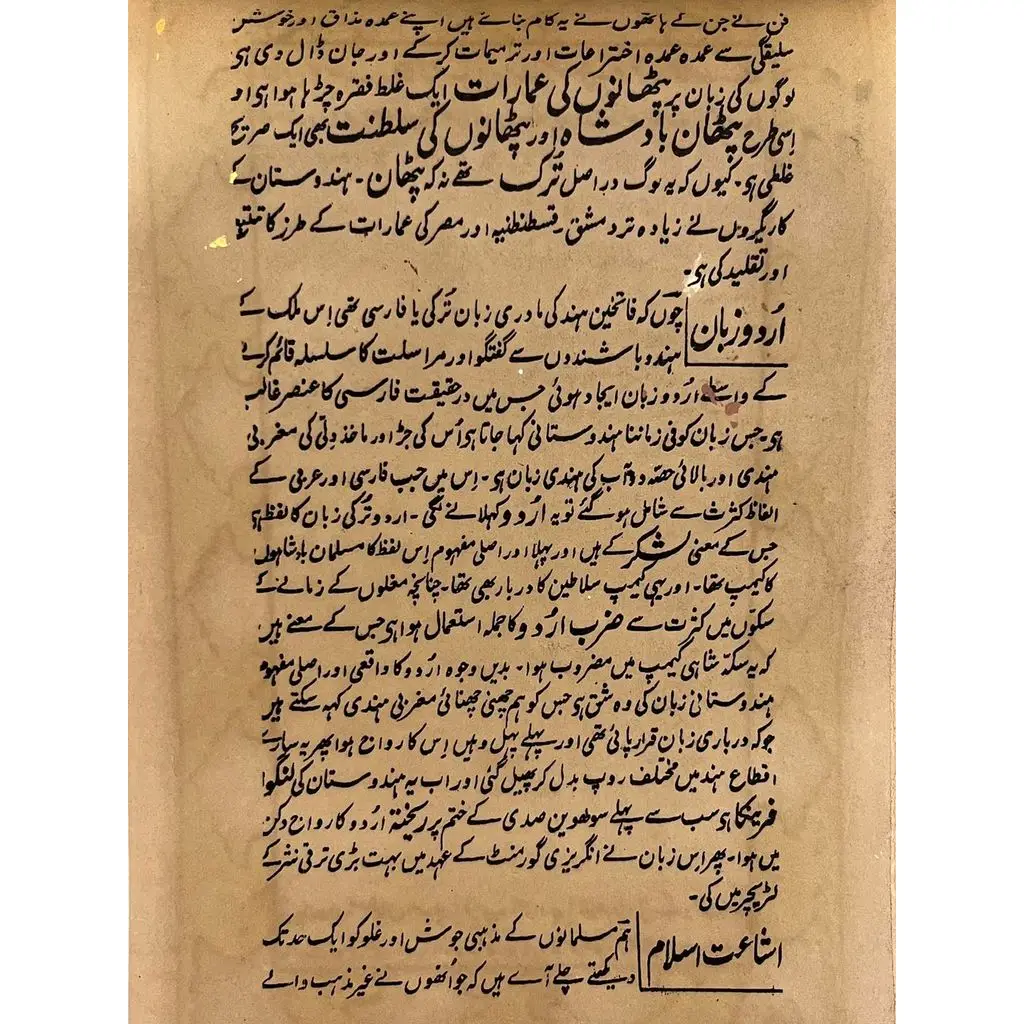 فن نے جن کے ہاتھوں نے یہ کام بنائے ہیں اپنے عمدہ مذاق اور خوش
سلیقگی سے عمدہ عمدہ اختراعات اور ترمیمات کرکے اور جان ڈال دی ہی
لوگوں کی زبان پر پٹھانوں کی عمارات ایک غلط فقرہ چڑہا ہوا ہی او
اِسی طرح پٹھان بادشاہ اور پٹھانوں کی سلطنت بھی ایک صریح
غلطی ہی۔ کیوں کہ یہ لوگ دراصل تُرک تھے نہ کہ پٹھان۔ ہندوستان کے
کاریگروں نے زیادہ تر دمشق، قسطنطنیہ اور مصر کی عمارات کے طرز کا تتبع
اور تقلید کی ہی۔
اُردو زبان
چوں کہ فاتحینِ ہند کی مادری زبان تُرکی یا فارسی تھی اِس ملک کے
ہندو باشندوں سے گفتگو اور مراسلت کا سلسلہ قائم کرنے
کے واسطے اُردو زبان ایجاد ہوئی جس میں درحقیقت فارسی کا عنصر غالب
ہی۔ جس زبان کو فی زماننا ہندوستانی کہا جاتا ہی اُس کی جڑ اور ماخذ دِلّی کی مغربی
ہندی اور بالائی حصّہ دوآب کی ہندی زبان ہی۔ اِس میں جب فارسی اور عربی کے
الفاظ کثرت سے شامل ہوگئے تو یہ اُردو کہلانے لگی۔ اردو تُرکی زبان کا لفظ ہی
جس کے معنی لشکر کے ہیں اور پہلا اور اصلی مفہوم اِس لفظ کا مسلمان بادشاہوں
کا کیمپ تھا۔ اور یہی کیمپ سلاطین کا دربار بھی تھا۔ چنانچہ مغلوں کے زمانے کے
سکّوں میں کثرت سے ضرب اُردو کا جملہ استعمال ہوا ہی جس کے معنے ہیں
کہ یہ سکّہ شاہی کیمپ میں مضروب ہوا۔ بدیں وجوہ اُردو کا واقعی اور اصلی مفہوم
ہندوستانی زبان کی وہ شق ہی جس کو ہم چھنی چھنائی مغربی ہندی کہہ سکتے ہیں
جو کہ درباری زبان قرار پائی تھی اور پہلے پہل وہیں اِس کا رواج ہوا پھر یہ سارے
اقطاع ہند میں مختلف روپ بدل کر پھیل گئی اور اب یہ ہندوستان کی لنگوا
فرینکا ہی سب سے پہلے سولھویں صدی کے ختم پر ریختۂ اُردو کا رواج دکن
میں ہوا۔ پھر اِس زبان نے انگریزی گورمنٹ کے عہد میں بہت بڑی ترقی نثر کے
لٹریچر میں کی۔
اشاعت اسلام
ہم مسلمانوں کے مذہبی جوش اور غلو کو ایک حد تک
دیکھتے چلے آئے ہیں کہ جو اُنھوں نے غیر مذہب والے